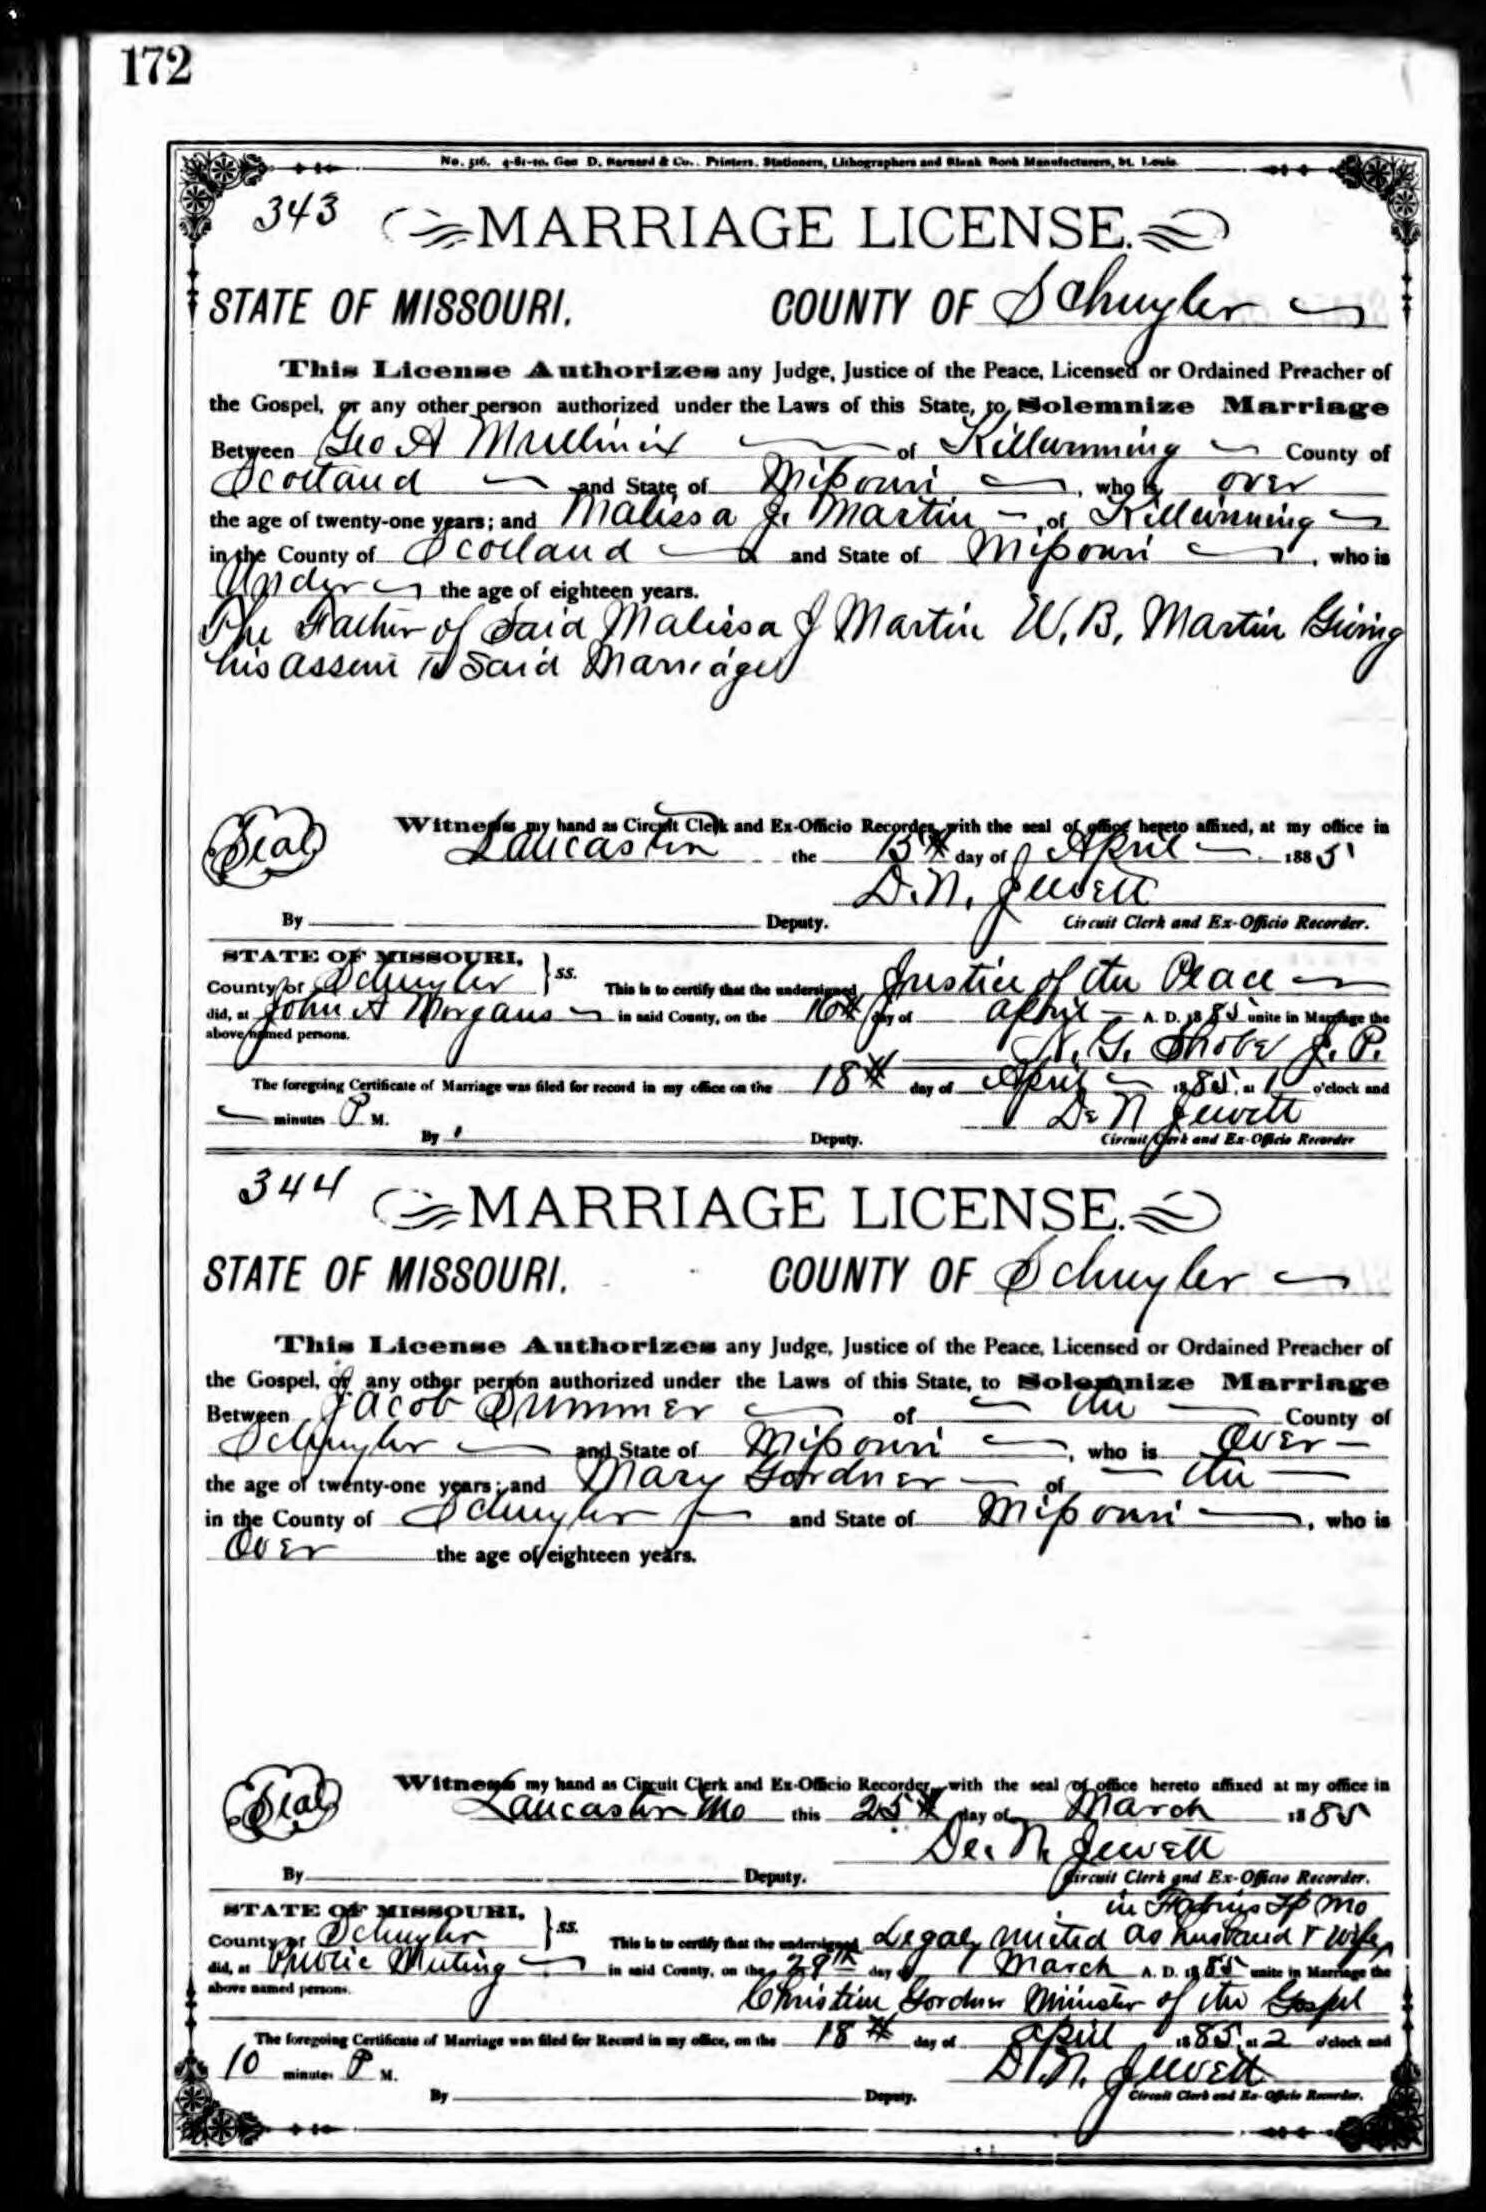 172
No. 516. 4-81-10. Geo D. Barnard & Co., Printers, Stationers, Lithographers and Blank Book Manufacturers, St. Louis
343
MARRIAGE LICENSE.
STATE OF MISSOURI. COUNTY OF Schuyler
This License Authorizes any Judge, Justice of the Peace, Licensed or Ordained Preacher of
the Gospel, or any other person authorized under the Laws of this State, to Solemnize Marriage
Between Geo A Mullinix of Killwinning County of
Scotland and State of Missouri, who is over
the age of twenty-one years; and Malissa J. Martin, of Killwinning
in the County of Scotland and State of Missouri, who is
Under the age of eighteen years.
The Father of Said Malissa J Martin W. B. Martin Giving
his assent to Said Marriage
Seal
Witness my hand as Circuit Clerk and Ex-Officio Recorder, with the seal of office hereto affixed, at my office in
Lancaster the 15th day of April 1885
D. N. Jewett
By Deputy. Circuit Clerk and Ex-Officio Recorder.
STATE OF MISSOURI,
County of Schuyler } ss. This is to certify that the undersigned Justice of the Peace
did, at John A Morgans in said County, on the 16th day of April A. D. 1885 unite in Marriage the
above named persons.
N. G. Shobe J. P.
The foregoing Certificate of Marriage was filed for record in my office on the 18th day of April 1885, at 1 o'clock and
minutes P M. De N Jewett
By Deputy. Circuit Clerk and Ex-Officio Recorder
344
MARRIAGE LICENSE.
STATE OF MISSOURI. COUNTY OF Schuyler
This License Authorizes any Judge, Justice of the Peace, Licensed or Ordained Preacher of
the Gospel, or any other person authorized under the Laws of this State, to Solemnize Marriage
Between Jacob Summer of the County of
Schuyler and State of Missouri, who is Over
the age of twenty-one years; and Mary Gordner of the
in the County of Schuyler and State of Missouri, who is
Over the age of eighteen years.
Seal
Witness my hand as Circuit Clerk and Ex-Officio Recorder, with the seal of office hereto affixed at my office in
Lancaster Mo this 25th day of March 1885
De. N. Jewett
By Deputy. Circuit Clerk and Ex-Officio Recorder.
STATE OF MISSOURI, in Tp Mo
County of Schuyler } ss. This is to certify that the undersigned Legaly united as husband & wife
did, at Public Meeting in said County, on the 29th day of March A. D. 1885 unite in Marriage the
above named persons. Christian Gordner Minister of the Gospel
The foregoing Certificate of Marriage was filed for Record in my office, on the 18th day of April 1885, at 2 o'clock and
10 minutes P M. D. N. Jewett
By Deputy. Circuit Clerk and Ex-Officio Recorder.